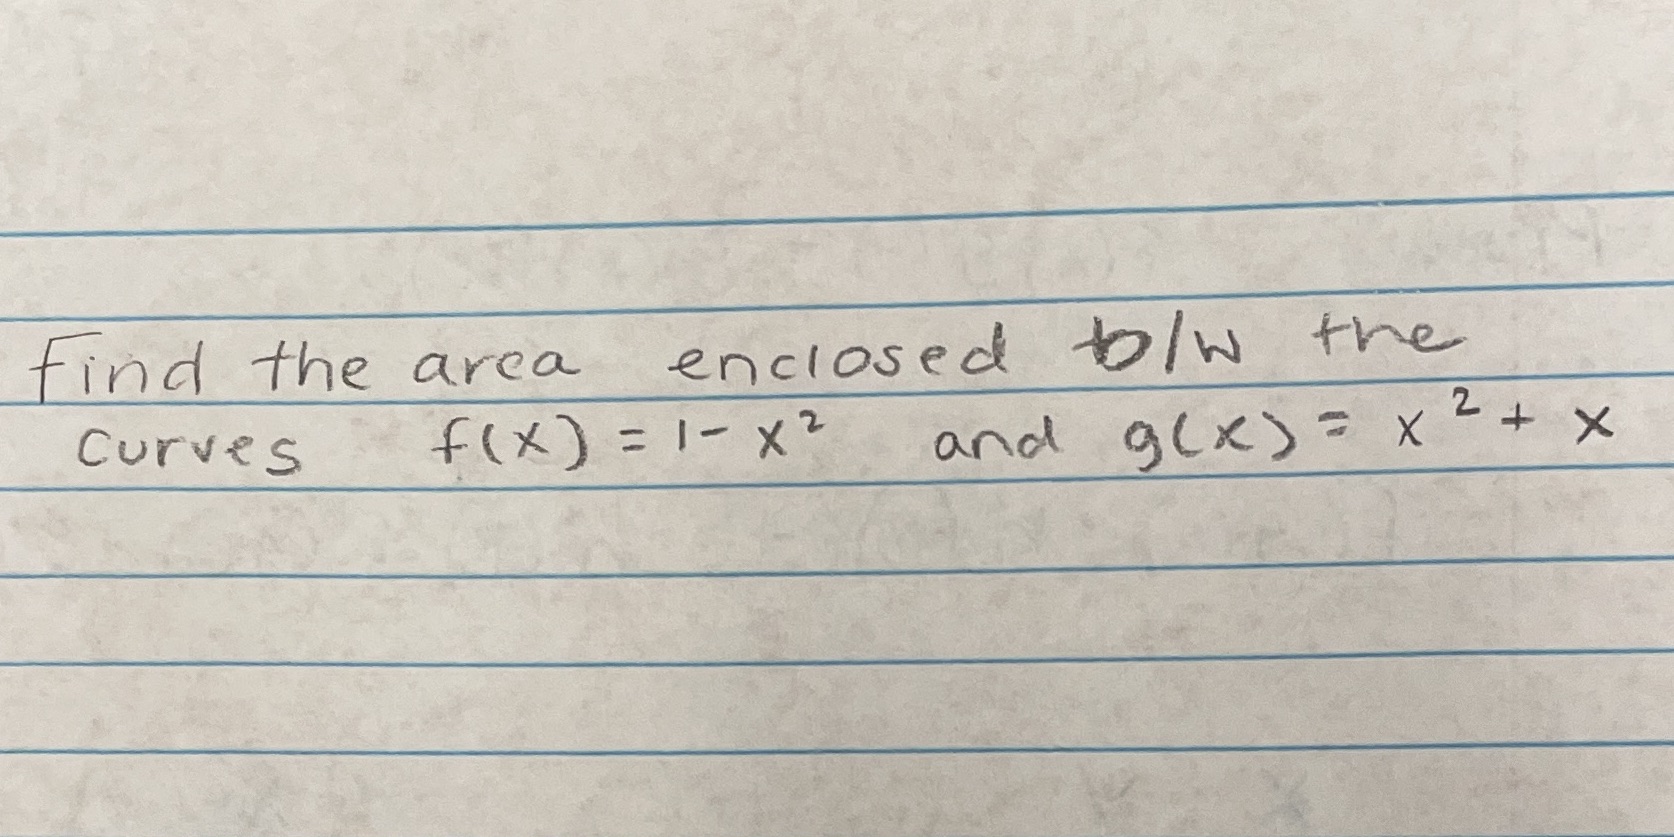 Find the area enclosed b/w the
curves f(x) = 1 - x² and g(x) = x² + x